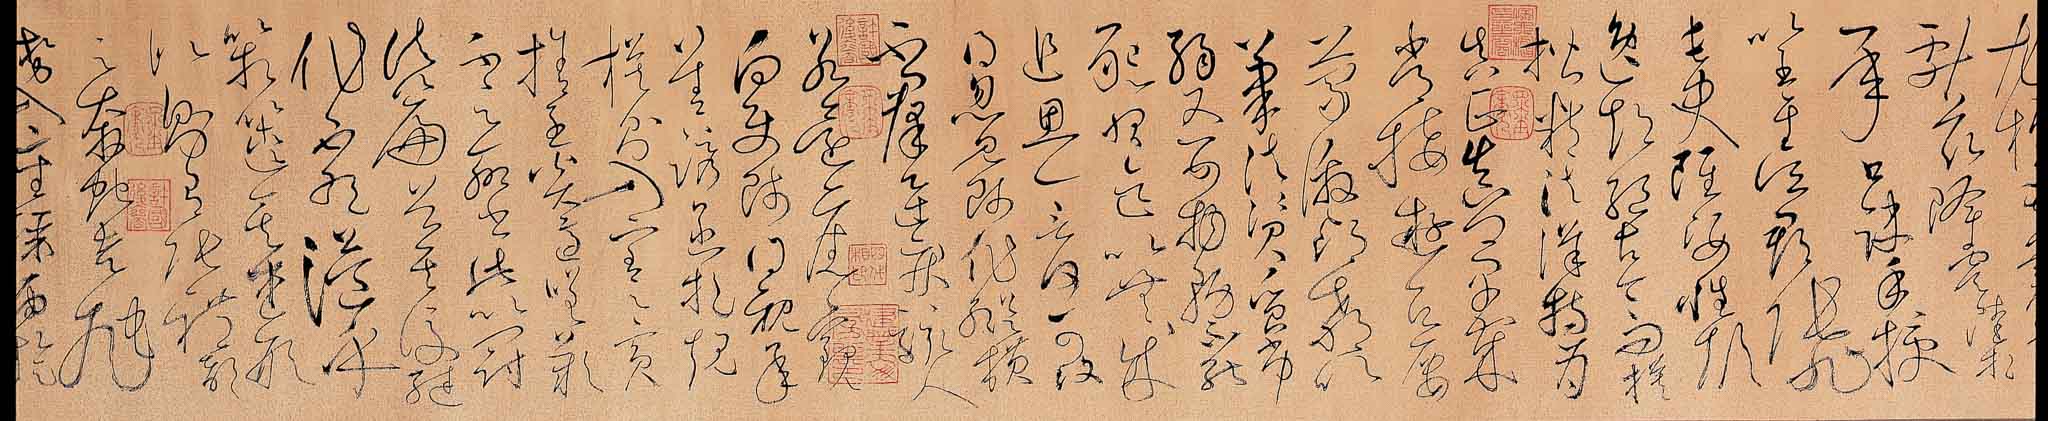 尤擅
獻茲降虞陸相
承口訣手授
以至于吳郡張旭
長史雖姿性顛
逸超絕古今而模
楷精法詳特為
真正真卿早歲
常接遊居屢
蒙激昂教以
筆法資質劣
弱又嬰物務不能
懇習迄以無成
追思一言何可復
得忽見師作縱橫
不群迅疾駭人
若還舊觀
向使師得親承
善誘函挹規
模則入室之賓
捨子奚適嗟歎
不足聊書此以冠
諸篇首其後繼
作不絕溢乎
箱篋其述形
似則有張禮部
云奔蛇走虺
勢入座驟雨旋